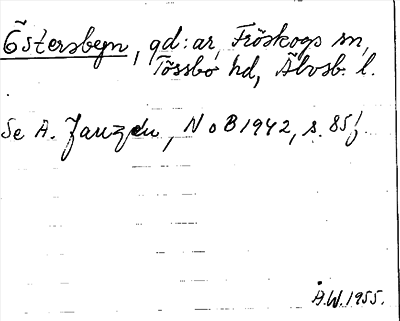 Östersbyn, gd:ar, Fröskogs sn,
Tössbo hd, Älvsb. l.
Se A. Janzén, NoB 1942, s. 85f.
Å.W. 1955.